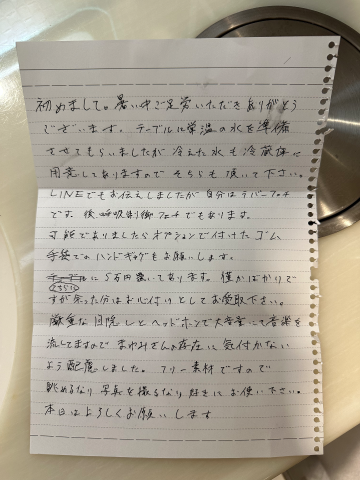 初めまして。暑い中ご足労いただきありがとう
ございます。テーブルに常温の水を準備
させてもらいましたが冷えた水も冷蔵庫に
用意してありますのでそちらも頂いて下さい。
LINEでもお伝えしましたが自分はラバーフェチ
です。後、呼吸制御フェチでもあります。
可能でありましたらオプションで付けたゴム
手袋でのハンドギャグもお願いします。
こちらに5万円置いてあります。僅かばかりで
すが余った分はお心付けとしてお受取下さい。
厳重な目隠しとヘッドホンで大音量にて音楽を
流してますのでまゆみさんの存在に気付かない
よう配慮しました。フリー素材ですので
眺めるなり写真を撮るなり好きにお使い下さい。
本日はよろしくお願いします